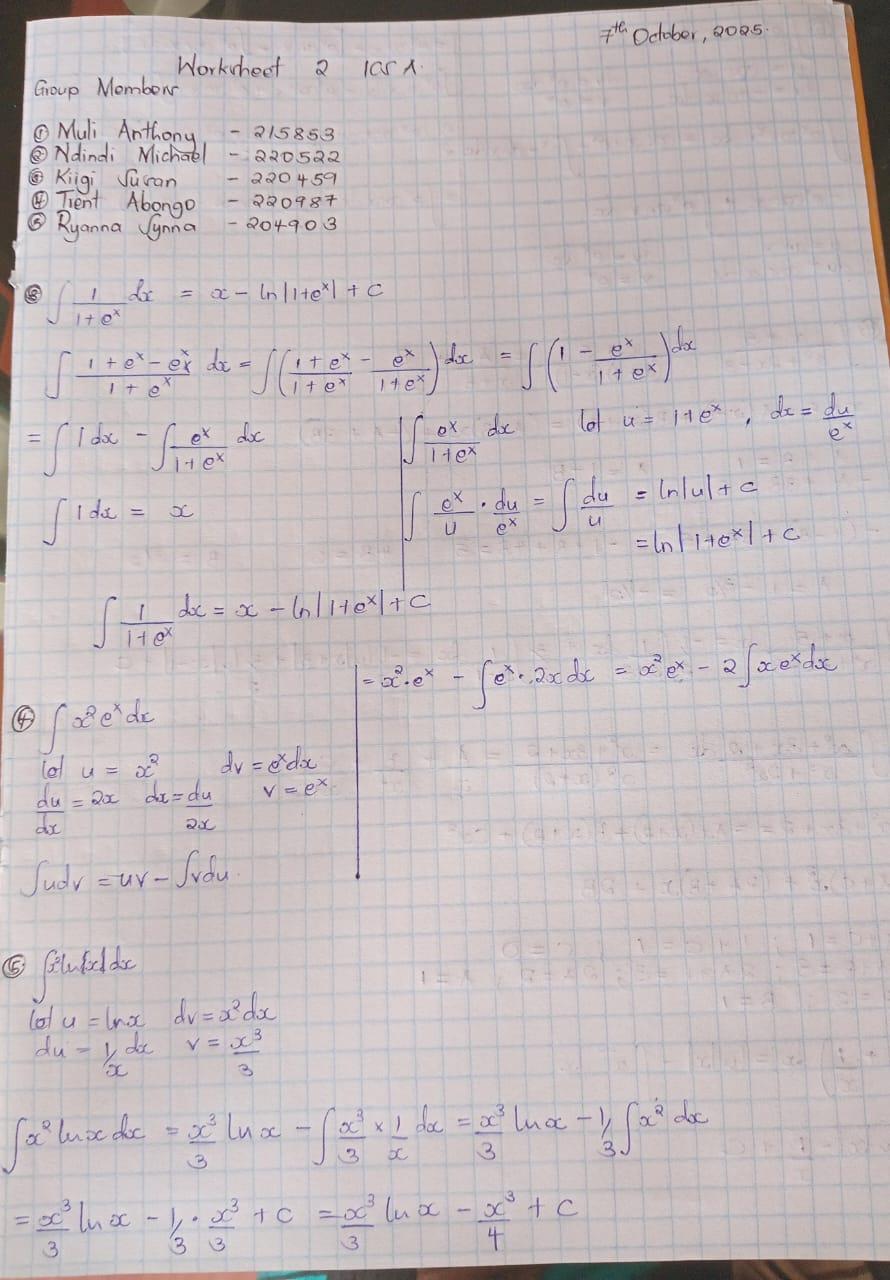 7th October, 2025.
Worksheet 2 ICS A.
Group Members
① Muli Anthony - 215853
② Ndindi Michael - 220522
③ Kiigi Susan - 220459
④ Tient Abongo - 220987
⑤ Ryanna Synna - 204903
③ ∫ 1/(1+e^x) dx = x - ln|1+e^x| + C
∫ (1+e^x-e^x)/(1+e^x) dx = ∫((1+e^x)/(1+e^x) - e^x/(1+e^x)) dx = ∫(1 - e^x/(1+e^x)) dx
= ∫1dx - ∫ e^x/(1+e^x) dx
∫1dx = x
∫ e^x/(1+e^x) dx let u = 1+e^x, dx = du/e^x
∫ e^x/u · du/e^x = ∫ du/u = ln|u| + c
= ln|1+e^x| + c
∫ 1/(1+e^x) dx = x - ln|1+e^x| + C
④ ∫x²e^x dx
let u = x² dv = e^x dx
du/dx = 2x dx = du/2x v = e^x
∫udv = uv - ∫vdu.
= x²·e^x - ∫e^x·2xdx = x²e^x - 2∫xe^x dx
⑤
let u = lnx dv = x²dx
du = 1/x dx v = x³/3
∫x² lnx dx = x³/3 ln x - ∫x³/3 × 1/x dx = x³/3 ln x - 1/3 ∫x² dx
= x³/3 ln x - 1/3 · x³/3 + C = x³/3 ln x - x³/4 + C